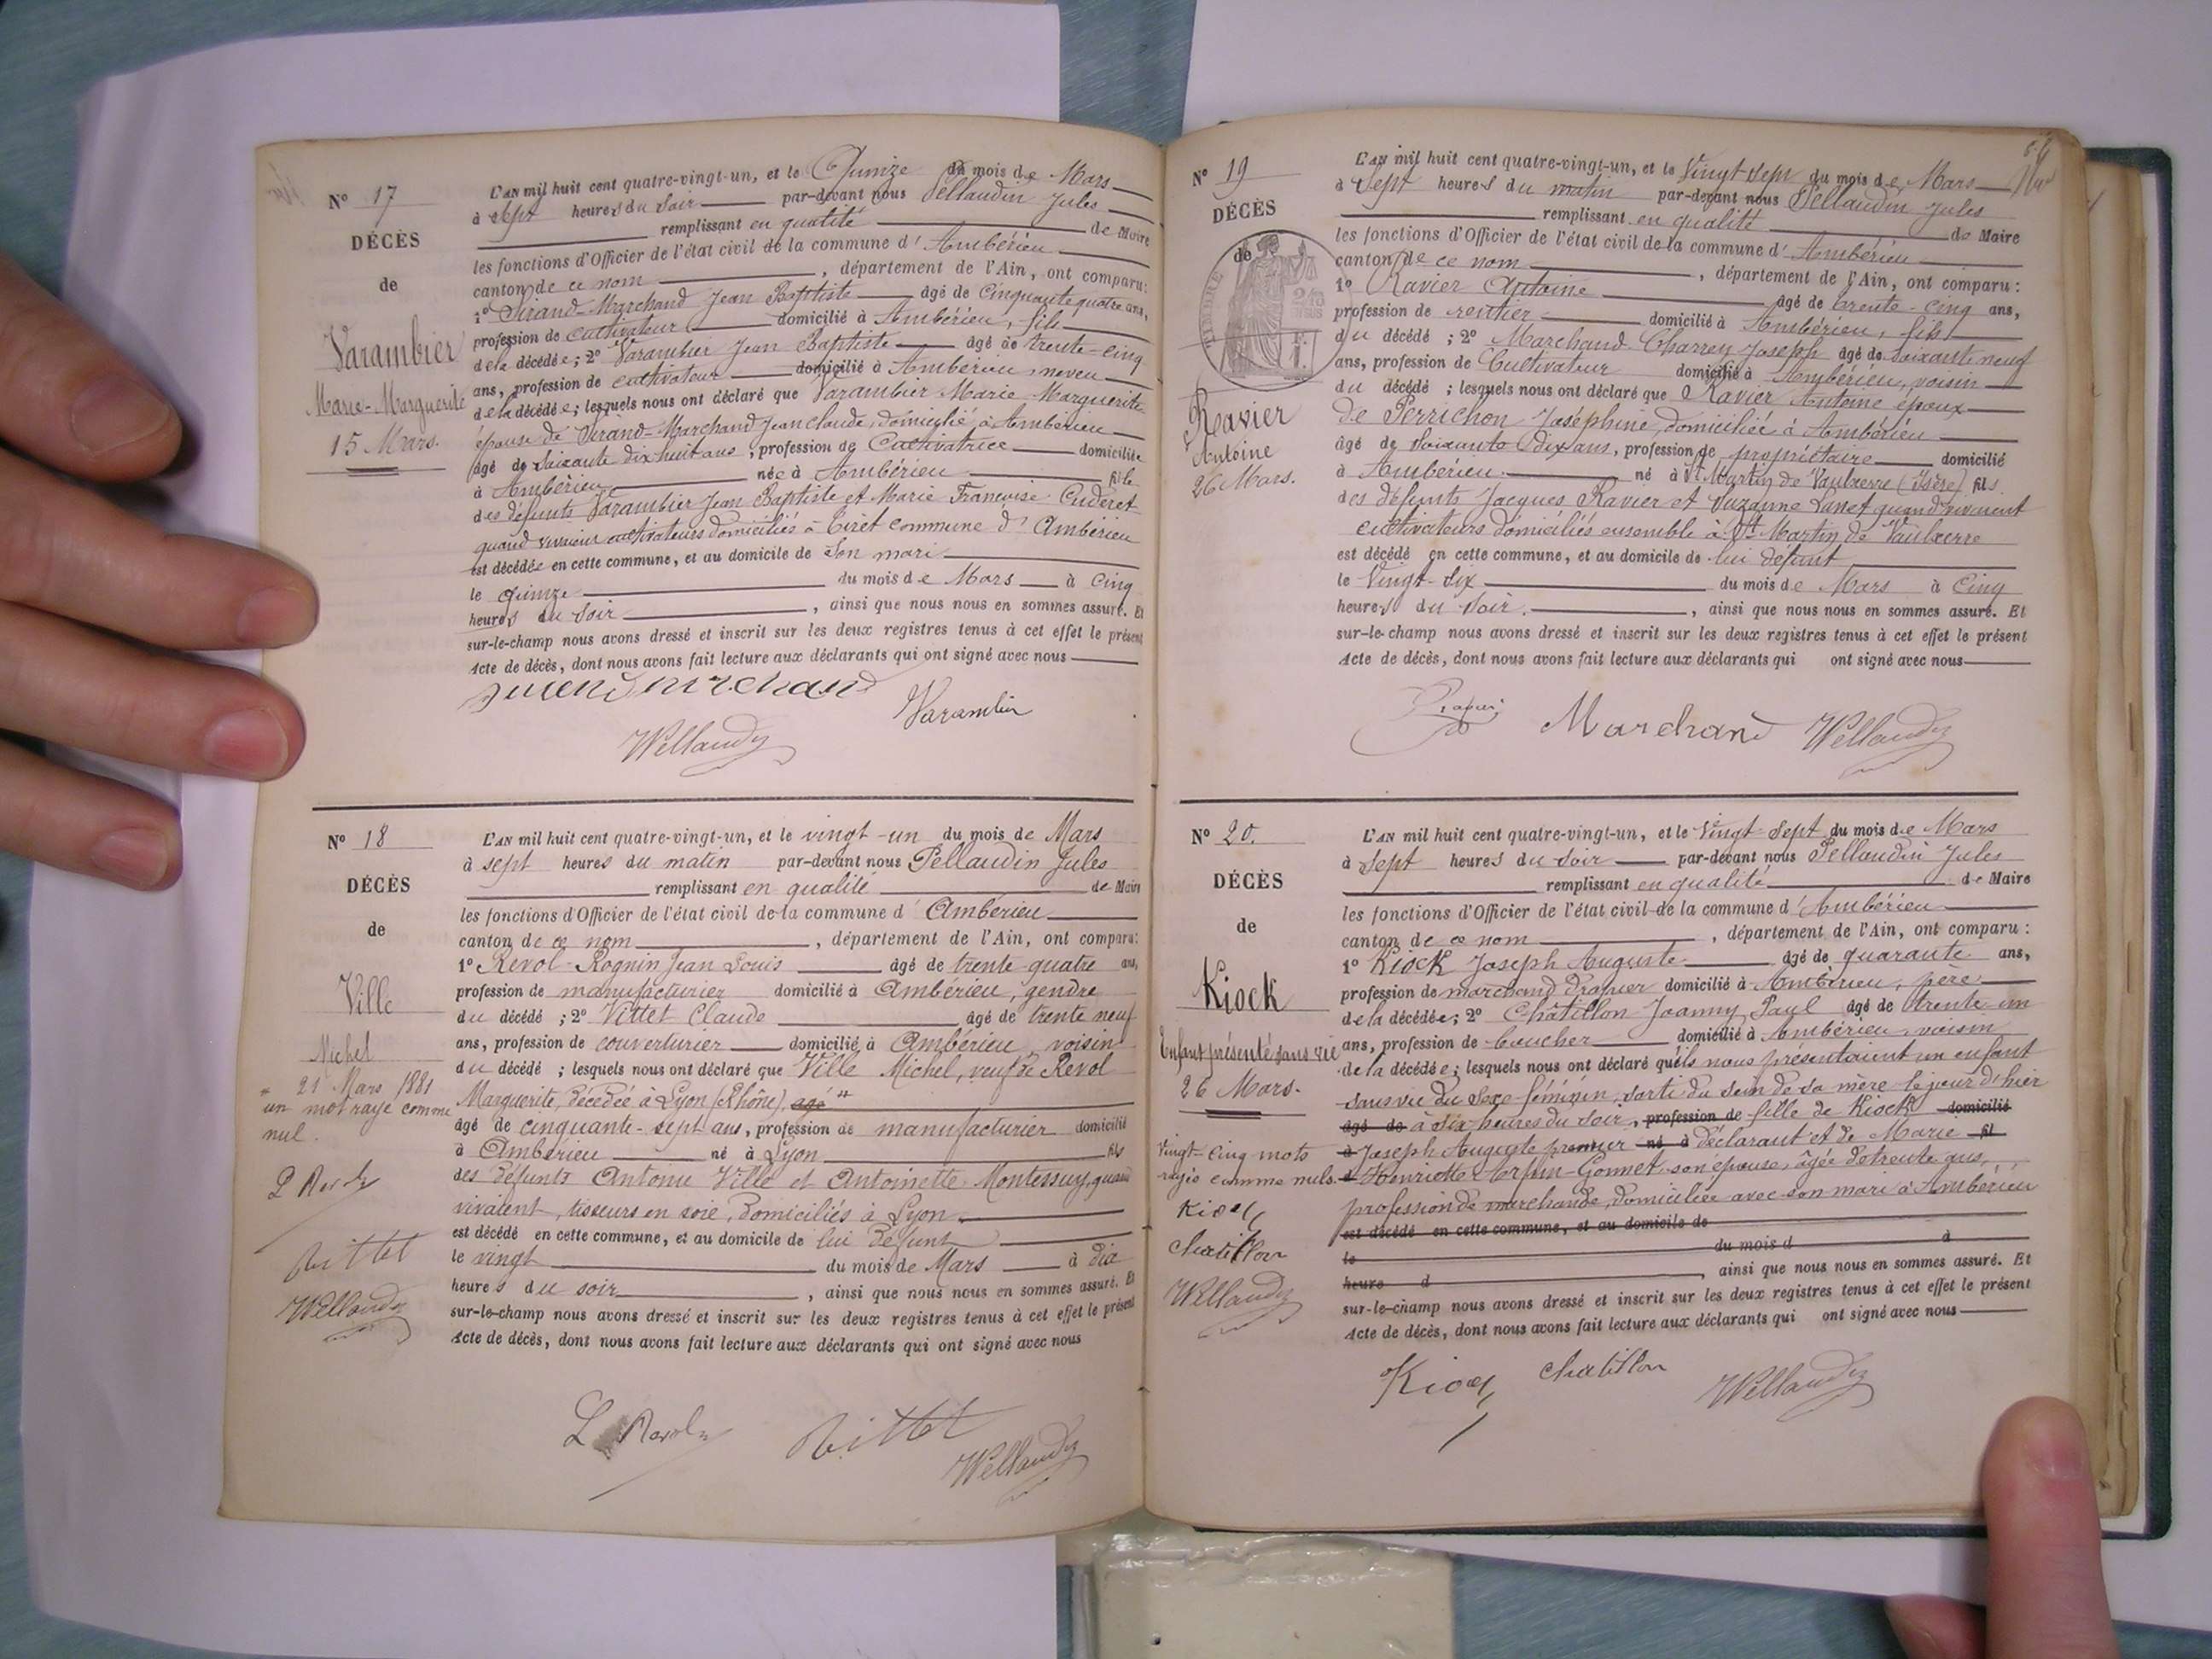 N° 17
DÉCÈS
de
Varambier
Marie-Marguerite
15 Mars.
L'AN mil huit cent quatre-vingt-un, et le Quinze du mois de Mars
à sept heures du soir par-devant nous Pellaudin Jules
remplissant en qualité de Maire
les fonctions d'Officier de l'état civil de la commune d' Ambérieu
canton de ce nom, département de l'Ain, ont comparu:
1° Sirand-Marchand Jean Baptiste âgé de Cinquante quatre ans,
profession de cultivateur domicilié à Ambérieu, fils
de la décédée; 2° Varambier Jean Baptiste âgé de trente-cinq
ans, profession de cultivateur domicilié à Ambérieu, neveu
de la décédée; lesquels nous ont déclaré que Varambier Marie Marguerite
épouse de Sirand-Marchand Jean Claude, domicilié à Ambérieu
âgé de Soixante dix huit ans, profession de Cultivatrice domiciliée
à Ambérieu née à Ambérieu fille
des défunts Varambier Jean Baptiste et Marie Françoise Cuderet
quand vivaient cultivateurs domiciliés à Tiret commune d' Ambérieu
est décédée en cette commune, et au domicile de son mari
le quinze du mois de Mars à Cinq
heures du soir, ainsi que nous nous en sommes assuré. Et
sur-le-champ nous avons dressé et inscrit sur les deux registres tenus à cet effet le présent
Acte de décès, dont nous avons fait lecture aux déclarants qui ont signé avec nous
Varambier
N° 18
DÉCÈS
de
Ville
Michel
21 Mars 1881
un mot rayé comme
nul.
L'AN mil huit cent quatre-vingt-un, et le vingt-un du mois de Mars
à sept heures du matin par-devant nous Pellaudin Jules
remplissant en qualité de Maire
les fonctions d'Officier de l'état civil de la commune d' Ambérieu
canton de ce nom, département de l'Ain, ont comparu:
1° Revol-Rognin Jean Louis âgé de trente-quatre ans,
profession de manufacturier domicilié à Ambérieu, gendre
du décédé; 2° Vittet Claude âgé de trente neuf
ans, profession de couverturier domicilié à Ambérieu voisin
du décédé; lesquels nous ont déclaré que Ville Michel, veuf de Revol
Marguerite, décédée à Lyon (Rhône), agé
âgé de cinquante-sept ans, profession de manufacturier domicilié
à Ambérieu né à Lyon fils
des défunts Antoine Ville et Antoinette Montessuy, quand
vivaient, tisseurs en soie, domiciliés à Lyon
est décédé en cette commune, et au domicile de lui défunt
le vingt du mois de Mars à dix
heures du soir, ainsi que nous nous en sommes assuré. Et
sur-le-champ nous avons dressé et inscrit sur les deux registres tenus à cet effet le présent
Acte de décès, dont nous avons fait lecture aux déclarants qui ont signé avec nous
L Revol
Vittet
N° 19
DÉCÈS
de
Ravier
Antoine
26 Mars.
L'AN mil huit cent quatre-vingt-un, et le Vingt-sept du mois de Mars
à Sept heures du matin par-devant nous Pellaudin Jules
remplissant en qualité de Maire
les fonctions d'Officier de l'état civil de la commune d' Ambérieu
canton de ce nom, département de l'Ain, ont comparu:
1° Ravier Antoine âgé de trente-cinq ans,
profession de rentier domicilié à Ambérieu, fils
du décédé; 2° Marchand-Charrey Joseph âgé de soixante neuf
ans, profession de Cultivateur domicilié à Ambérieu, voisin
du décédé; lesquels nous ont déclaré que Ravier Antoine époux
de Perrichon Joséphine, domiciliée à Ambérieu
âgé de Soixante Dix ans, profession de propriétaire domicilié
à Ambérieu né à St Martin de Vaulserre (Isère) fils
des défunts Jacques Ravier et Suzanne Lavet quand vivaient
cultivateurs domiciliés ensemble à St Martin de Vaulserre
est décédé en cette commune, et au domicile de lui défunt
le Vingt-six du mois de Mars à Cinq
heures du soir, ainsi que nous nous en sommes assuré. Et
sur-le-champ nous avons dressé et inscrit sur les deux registres tenus à cet effet le présent
Acte de décès, dont nous avons fait lecture aux déclarants qui ont signé avec nous
Marchand
N° 20.
DÉCÈS
de
Kiock
Enfant présenté sans vie
26 Mars.
Vingt-cinq mots
rayés comme nuls.
Kiock
Chatillon
L'AN mil huit cent quatre-vingt-un, et le Vingt-sept du mois de Mars
à Sept heures du soir par-devant nous Pellaudin Jules
remplissant en qualité de Maire
les fonctions d'Officier de l'état civil de la commune d' Ambérieu
canton de ce nom, département de l'Ain, ont comparu:
1° Kiock Joseph Auguste âgé de quarante ans,
profession de marchand drapier domicilié à Ambérieu, père
de la décédée; 2° Châtillon Joanny Paul âgé de trente un
ans, profession de boucher domicilié à Ambérieu, voisin
de la décédée; lesquels nous ont déclaré qu'ils nous présentaient un enfant
sans vie du sexe féminin, sorti du sein de sa mère le jour d'hier
âgé de à six heures du soir, profession de fille de Kiock domicilié
à Joseph Auguste premier né à déclarant et de Marie fil
d Henriette Orpin-Gonnet son épouse, âgée de trente ans,
profession de marchande, domiciliée avec son mari à Ambérieu
est décédé en cette commune, et au domicile de
le du mois d à
heure d, ainsi que nous nous en sommes assuré. Et
sur-le-champ nous avons dressé et inscrit sur les deux registres tenus à cet effet le présent
Acte de décès, dont nous avons fait lecture aux déclarants qui ont signé avec nous
Kiock
Chatillon